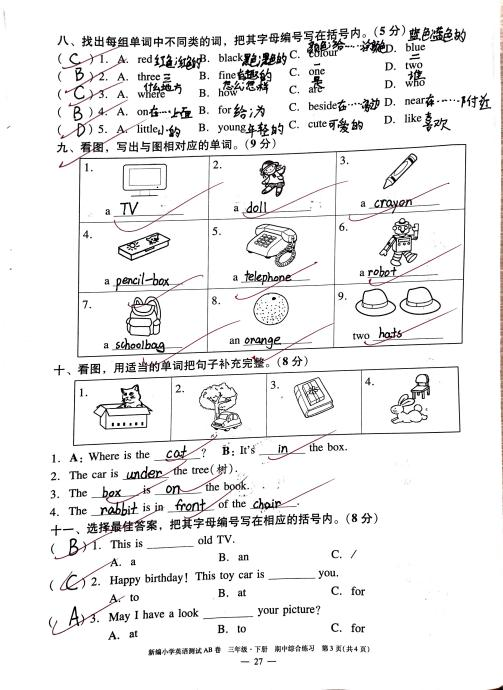 八、找出每组单词中不同类的词，把其字母编号写在括号内。(5分)
( C ) 1. A. red 红色 红色的 B. black 黑色 黑色的 C. colour D. blue 蓝色 蓝色的
( B ) 2. A. three 三 B. fine C. one 一 D. two 二
( C ) 3. A. where 什么地方 B. how 怎么 怎样 C. are 是 D. who 谁
( B ) 4. A. on 在……上面 B. for 给;为 C. beside 在…… D. near 在……附近
( D ) 5. A. little 小的 B. young 年轻的 C. cute 可爱的 D. like 喜欢
九、看图，写出与图相对应的单词。(9分)
1. 2. 3.
a TV a doll a crayon
4. 5. 6.
a pencil-box a telephone a robot
7. 8. 9.
a schoolbag an orange two hats
十、看图，用适当的单词把句子补充完整。(8分)
1. 2. 3. 4.
1. A: Where is the cat ? B: It's in the box.
2. The car is under the tree(树).
3. The box is on the book.
4. The rabbit is in front of the chair.
十一、选择最佳答案，把其字母编号写在相应的括号内。(8分)
( B ) 1. This is ________ old TV.
A. a B. an C. /
( C ) 2. Happy birthday! This toy car is ________ you.
A. to B. at C. for
( A ) 3. May I have a look ________ your picture?
A. at B. to C. for
新编小学英语测试AB卷 三年级·下册 期中综合练习 第3页(共4页)
— 27 —